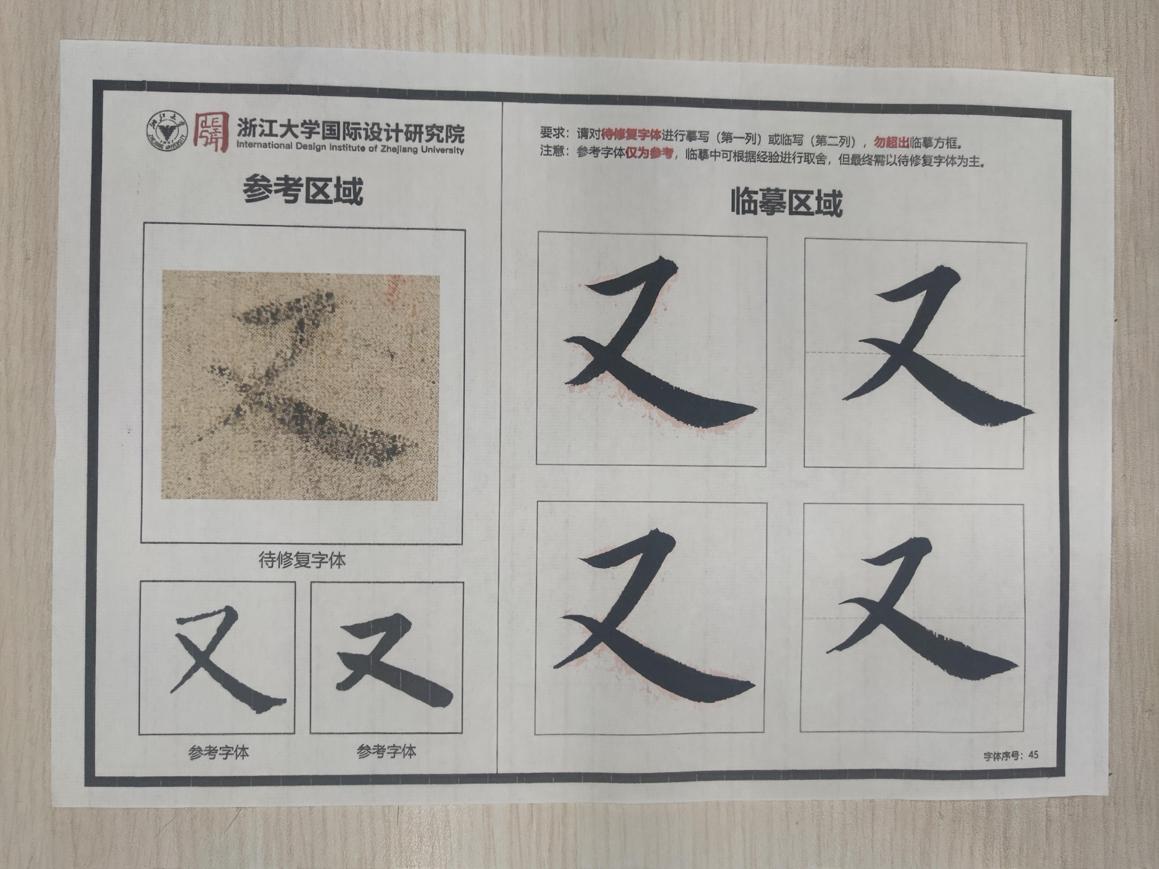 浙江大学国际设计研究院
International Design Institute of Zhejiang University
参考区域
待修复字体
又
又
参考字体
参考字体
要求：请对待修复字体进行摹写（第一列）或临写（第二列），勿超出临摹方框。
注意：参考字体仅为参考，临摹中可根据经验进行取舍，但最终需以待修复字体为主。
临摹区域
又
又
又
又
又
字体序号：45